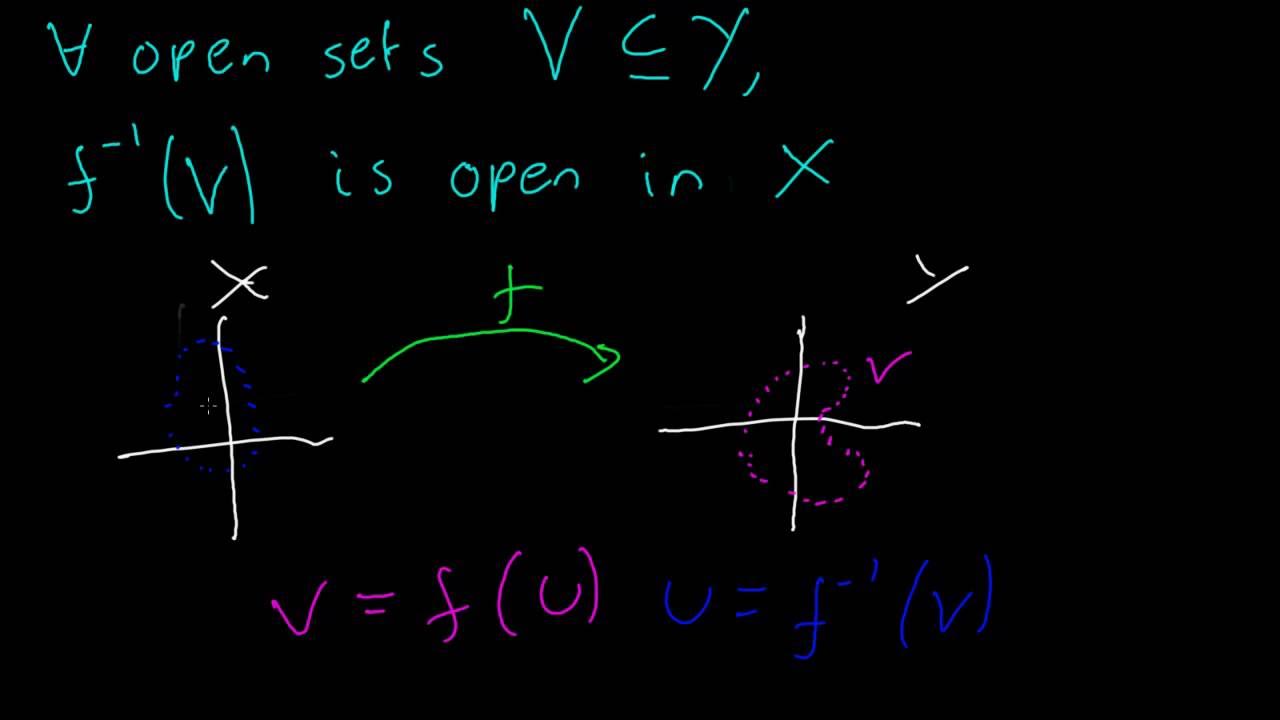 ∀ open sets V ⊆ Y,
f⁻¹(V) is open in X
X f Y
V
V = f(U) U = f⁻¹(V)